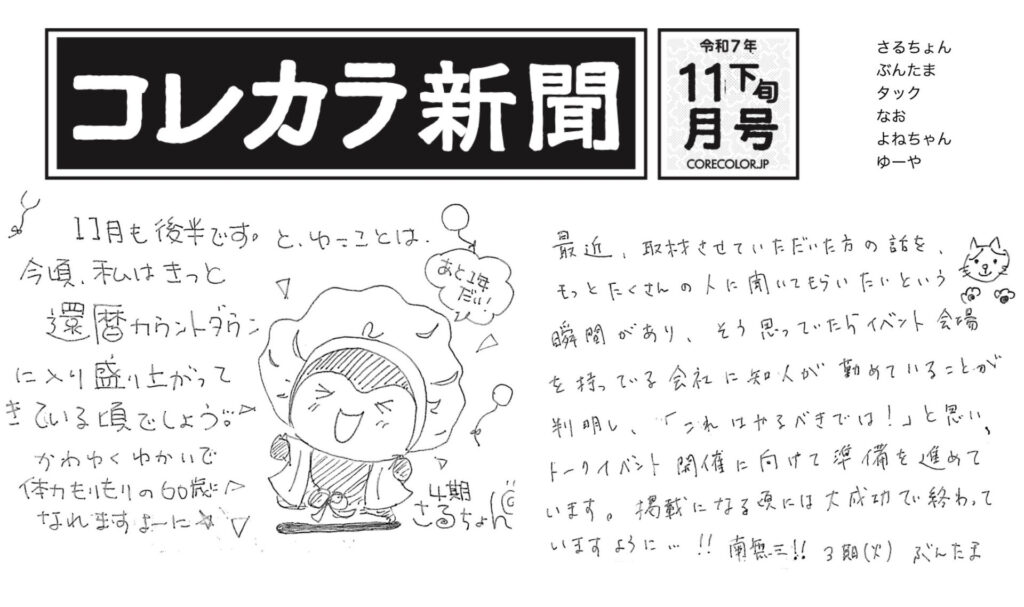 コレカラ新聞
令和7年
11月下旬号
CORECOLOR.JP
さるちょん
ぶんたま
タック
なお
よねちゃん
ゆーや
11月も後半です。と、ゆーことは、
今頃、私はきっと
還暦カウントダウン
に入り盛り上がって
きている頃でしょう。
かわゆくゆかいで
体力もりもりの60歳に
なれますよーに☆
あと1年
だい!
4期
さるちょん
最近、取材させていただいた方の話を、
もっとたくさんの人に聞いてもらいたいという
瞬間があり、そう思っていたらイベント会場
を持っている会社に知人が勤めていることが
判明し、「これはやるべきでは!」と思い、
トークイベント開催に向けて準備を進めて
います。掲載になる頃には大成功で終わって
いますように…!! 南無三!! 3期(火) ぶんたま